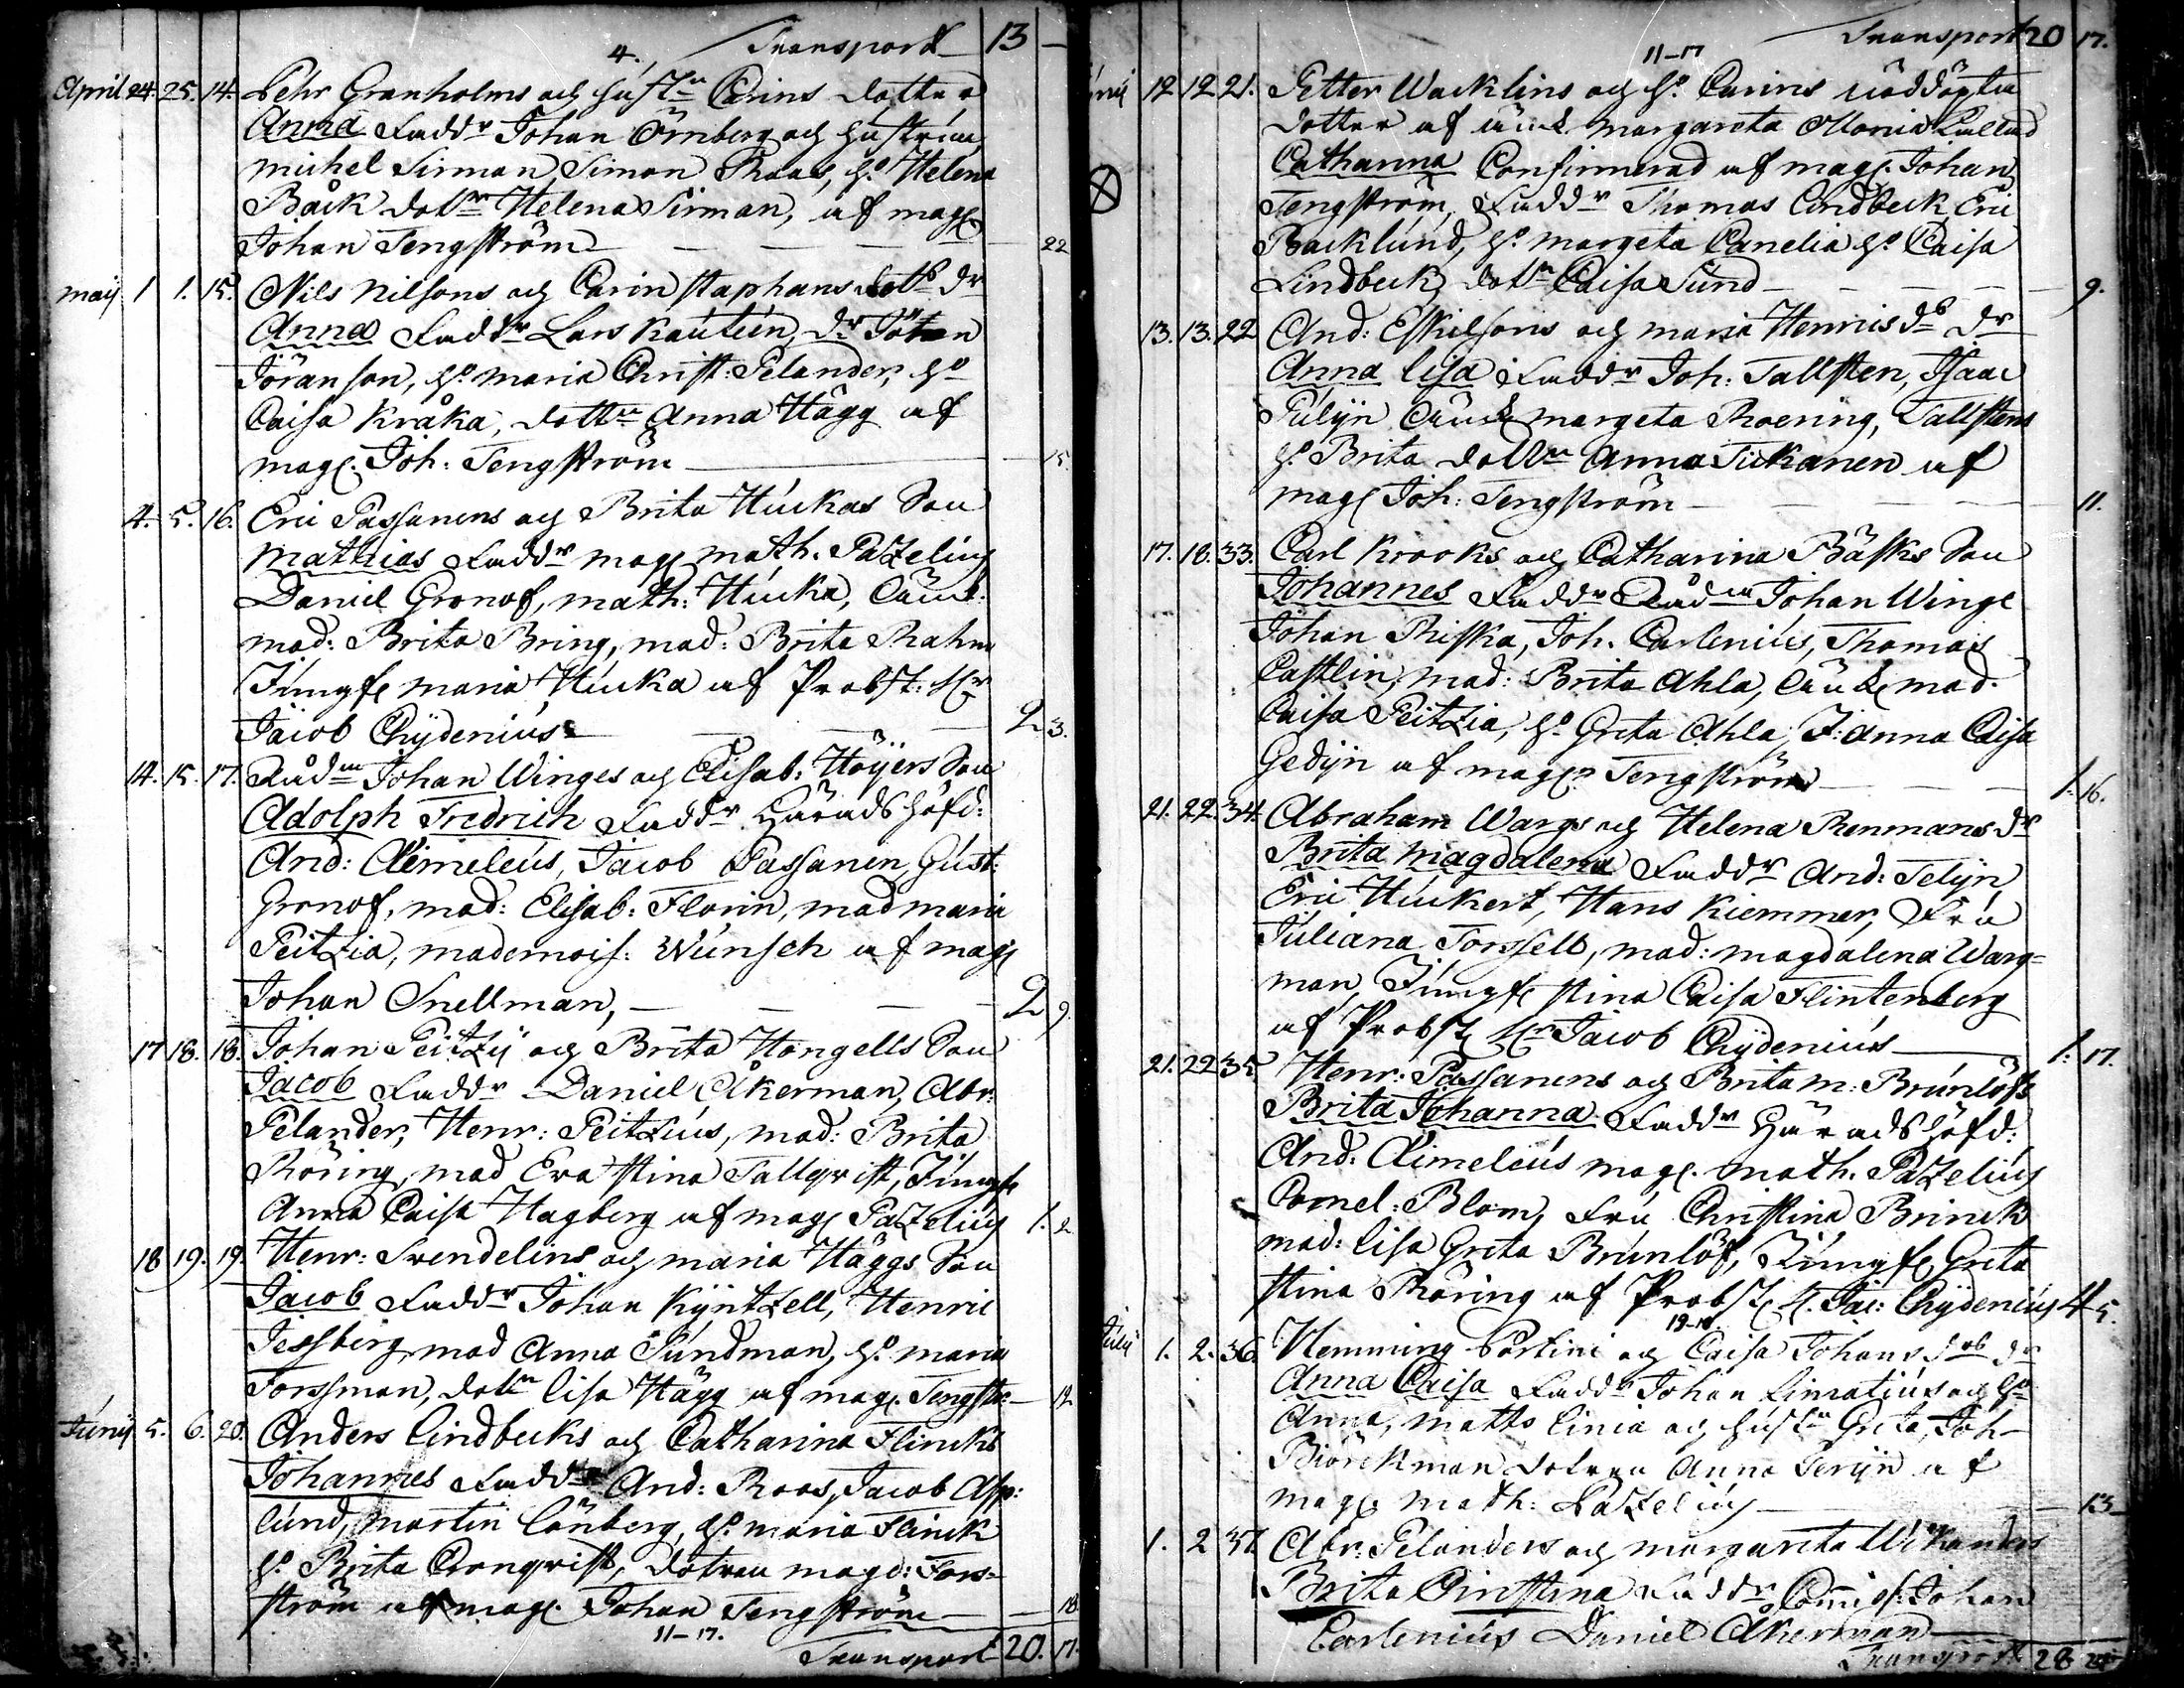 4. Transport 13 —
April 24. 25. 14. Pehr Granholms och hustru Carins dotter
Anna Faddr Johan Örnberg och hustrun,
Michel Sirman, Simon Roos, h:o Helena
Bäck dottrn Helena Sirman, af mag:
Johan Tengström — — — — — 22
Maij 1 1. 15. Nils Nilsons och Carin Staphansdotts dr
Anna Faddr Lars Kautien, dr Johan
Jöranson, h:o Maria Christ: Pelander, h:o
Caisa Kråka, dottrn Anna Hägg af
mag: Joh: Tengström — 15
4. 5. 16. Eric Passanens och Brita Huckas Son
Mathias Faddr mag: Math: Pazelius
Daniel Gronof, Math: Hucka,
mad: Brita Bring, mad: Brita Rahm
Jungfr Maria Hucka af Probst: Hr
Jacob Chydenius — — — 2 3.
14. 15. 17. Rådm Johan Winges och Elisab: Höijers Son
Adolph Fredrich Faddr Häradshöfd:
And: Aimeleus, Jacob Passanen, Gust:
Gronof, mad: Elisab: Florin, mad Maria
Peitzia, mademois: Wunsch af mag:
Johan Snellman, — — — — 2 9.
17 18. 18. Johan Peitzij och Brita Hongells Son
Jacob Faddr Daniel Åkerman, Abr:
Pelander, Henr: Peitzius, mad: Brita
Röring, mad Eva Stina Tallqvist, Jungfr
Anna Caisa Hagberg af mag: Pazelius 1. 2
18 19. 19. Henr: Svendelins och Maria Häggs Son
Jacob Faddr Johan Kyntzell, Henric
Jessberg, mad Anna Sundman, h:o Maria
Forssman, dotrn Lisa Hägg af mag: Tengstr: — 12
Junij 5. 6. 20. Anders Lindbecks och Catharina Flincks
Johannes Faddr And: Roos, Jacob Asp:
lund, Martin Lönberg, h:o Maria Flinck
h:o Brita Cronqvist, dotren Magd: Fors=
ström af mag: Johan Tengström — — 18
11–17. Transport 20. 17.
11–17 Transport 20 17.
12 12 21. Petter Wacklins och h:o Carins nöddöpta
dotter af Margareta Maria kallad
Catharina Confirmerad af mag: Johan
Tengström, Faddr Thomas Lindbeck, Eric
Backlund, h:o Margeta Canelia h:o Caisa
Lindbeck, dotrn Caisa Sund — — — 9.
13. 13. 22 And: Eskilsons och Maria Henricsds dr
Anna Lisa Faddr Joh: Tallsten, Isaac
Margeta Roering, Tallstens
h:o Brita dottrn Anna Tickanen af
mag: Joh: Tengström — — — 11.
17. 18. 33. Carl Krooks och Catharina Bäsks Son
Johannes Faddr Rådm Johan Winge
Johan Riska, Joh. Carlenius, Thomas
Castlin, mad: Brita Ahla, mad.
Caisa Peitzia, h:o Greta Ahla, J: Anna Caisa
Gedijn af mag: Tengström — — — 1. 16.
21. 22. 34. Abraham Wargs och Helena Renmans dr
Brita Magdalena Faddr And: Telijn
Eric Huckert, Hans Kiemmer, Fru
Juliana Forssell, mad: Magdalena Warg=
man, Jungfr Stina Caisa Flintenberg
af Probst Hr Jacob Chydenius — 1. 17.
21. 22 35 Henr: Passanens och Brita M: Brunlöfs
Brita Johanna Faddr Häradshöfd:
And: Aimeleus mag: Math. Pazelius
Cornel: Blom, Fru Christina Brinck
mad: Lisa Greta Brunlöf, Jungfr Greta
Stina Röring af Probst H. Jac: Chydenius 4 5.
19–18.
Julij 1. 2. 36. Hemming Portini och Caisa Johansdrs dr
Anna Caisa Faddr Johan Limatius och h:o
Anna, Matts Linia och hustru Greta, Joh
Biörckman dotren Anna Serijn af
mag: Math: Pazelius — — 13
1. 2 37 Abr: Pelanders och Margareta Wikanders
Brita Christina Faddr Commiss: Johan
Carlenius Daniel Åkerman —
Transport 28